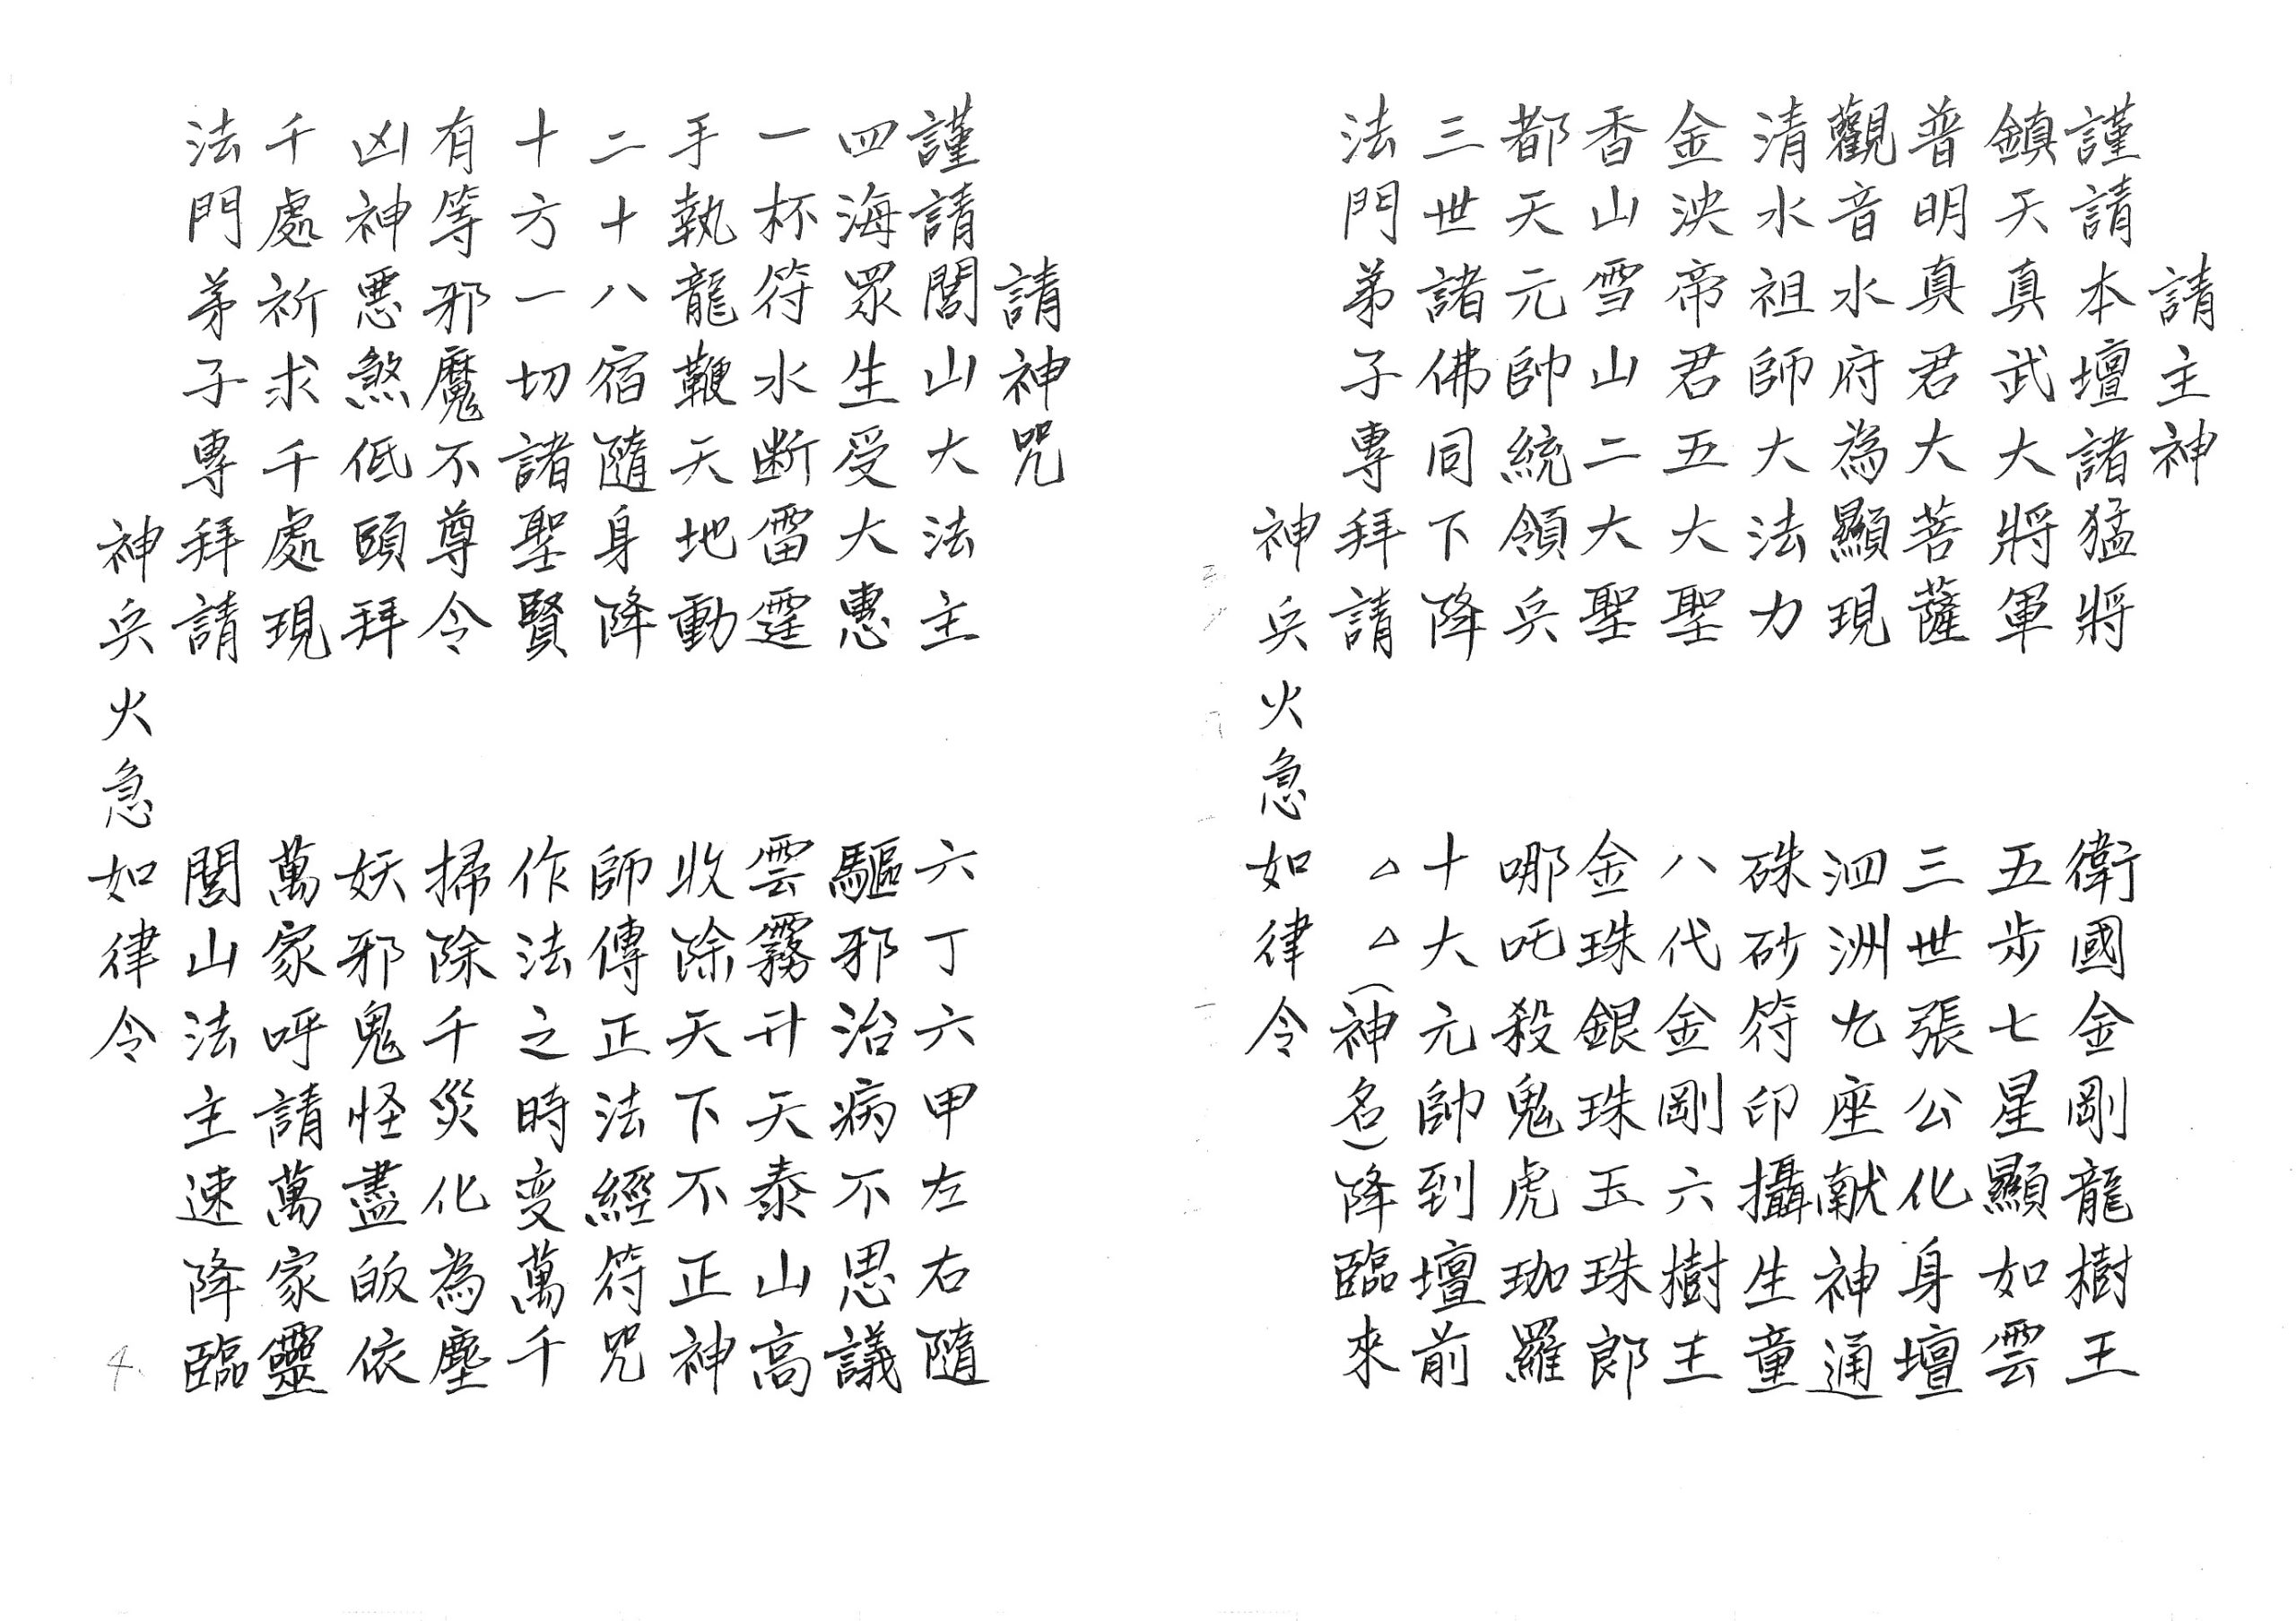 請主神
謹請本壇諸猛將 衛國金剛龍樹王
鎮天真武大將軍 五步七星顯如雲
普明真君大菩薩 三世張公化身壇
觀音水府為顯現 泗洲九座献神通
清水祖師大法力 硃砂符印攝生童
金泱帝君五大聖 八代金剛六樹王
香山雪山二大聖 金珠銀珠玉珠郎
都天元帥統領兵 哪吒殺鬼虎珈羅
三世諸佛同下降 十大元帥到壇前
法門弟子專拜請 △△(神名)降臨來
神兵火急如律令
請神咒
謹請閭山大法主 六丁六甲左右隨
四海眾生受大惠 驅邪治病不思議
一杯符水断雷霆 雲霧升天泰山高
手執龍鞭天地動 收除天下不正神
二十八宿隨身降 師傳正法經符咒
十方一切諸聖賢 作法之時变萬千
有等邪魔不尊令 掃除千災化為塵
凶神悪煞低頭拜 妖邪鬼怪盡皈依
千處祈求千處現 萬家呼請萬家靈
法門弟子專拜請 閭山法主速降臨
神兵火急如律令